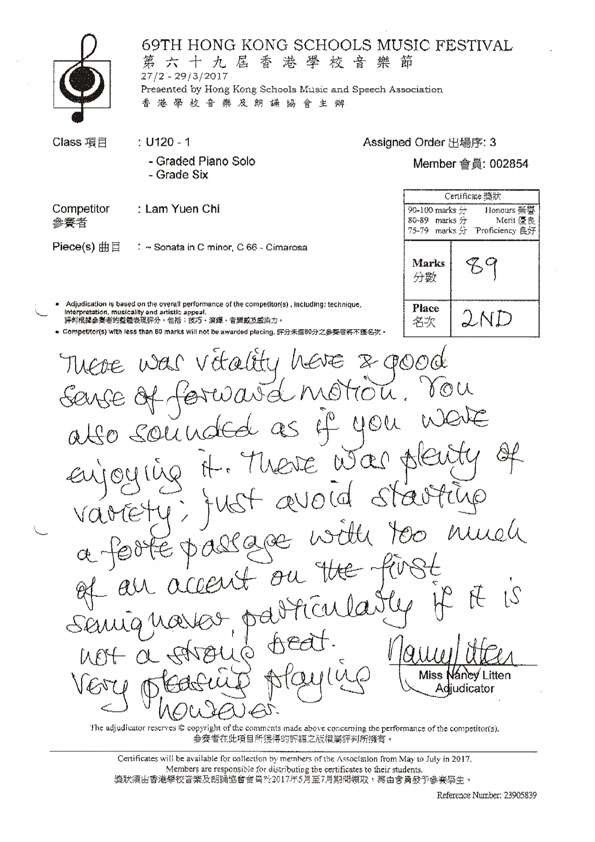 69TH HONG KONG SCHOOLS MUSIC FESTIVAL
第六十九屆香港學校音樂節
27/2 - 29/3/2017
Presented by Hong Kong Schools Music and Speech Association
香港學校音樂及朗誦協會主辦
Class 項目 : U120 - 1
Assigned Order 出場序: 3
- Graded Piano Solo
- Grade Six
Member 會員: 002854
Competitor : Lam Yuen Chi
參賽者
Certificate 獎狀
90-100 marks 分 Honours 榮譽
80-89 marks 分 Merit 優良
75-79 marks 分 Proficiency 良好
Piece(s) 曲目 : ~ Sonata in C minor, C 66 - Cimarosa
Marks 89
分數
Place 2ND
名次
• Adjudication is based on the overall performance of the competitor(s), including: technique,
interpretation, musicality and artistic appeal.
評判根據參賽者的整體表現評分，包括：技巧、演繹、音樂感及感染力。
• Competitor(s) with less than 80 marks will not be awarded placing. 評分未達80分之參賽者將不獲名次。
There was vitality here & good
sense of forward motion. You
also sounded as if you were
enjoying it. There was plenty of
variety; just avoid starting
a forte passage with too much
of an accent on the first
semiquaver, particularly if it is
not a strong beat.
Very pleasing playing
however.
Nancy Litten
Miss Nancy Litten
Adjudicator
The adjudicator reserves © copyright of the comments made above concerning the performance of the competitor(s).
參賽者在此項目所獲得的評語之版權屬評判所擁有。
Certificates will be available for collection by members of the Association from May to July in 2017.
Members are responsible for distributing the certificates to their students.
獎狀須由香港學校音樂及朗誦協會會員於2017年5月至7月期間領取，再由會員發予參賽學生。
Reference Number: 23905839